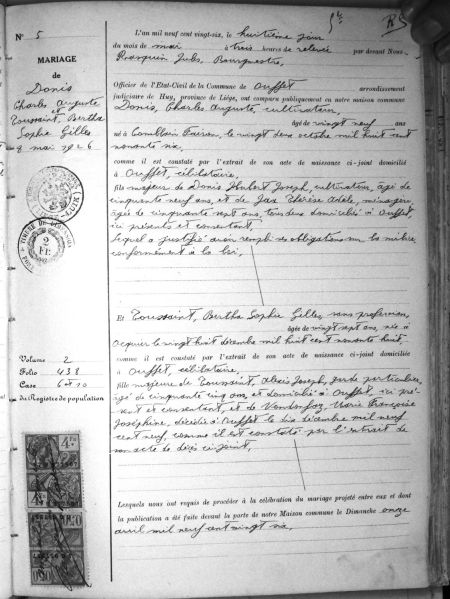 N° 5
MARIAGE
de
Donis
Charles Auguste
et
Toussaint, Bertha
Sophie Gilles
8 mai 1926
2
FR.
Volume 2
Folio 438
Case 6 et 10
du Registre de population
L'an mil neuf cent vingt-six, le huitième jour
du mois de mai à trois heures de relevée par devant Nous
Jules, Bourgmestre,
Officier de l'Etat-Civil de la Commune de Ouffet arrondissement
judiciaire de Huy, province de Liége, ont comparu publiquement en notre maison commune
Donis, Charles Auguste, cultivateur,
âgé de vingt neuf ans
né à Comblain Fairon, le vingt deux octobre mil huit cent
nonante six,
comme il est constaté par l'extrait de son acte de naissance ci-joint domicilié
à Ouffet, célibataire,
fils majeur de Donis Hubert Joseph, cultivateur, âgé de
cinquante neuf ans, et de Thérèse Adèle, ménagère,
âgée de cinquante sept ans, tous deux domiciliés à Ouffet,
ici présents et consentant,
lequel a justifié avoir rempli ses obligations sur la milice,
conformément à la loi,
Et Toussaint, Bertha Sophie Gilles, sans profession,
âgée de vingt sept ans, née à
le vingt huit décembre mil huit cent nonante huit,
comme il est constaté par l'extrait de son acte de naissance ci-joint domiciliée
à Ouffet, célibataire,
fille majeure de Toussaint, Alexis Joseph, garde particulier,
âgé de cinquante cinq ans, et domicilié à Ouffet, ici pré-
sent et consentant, et de Marie Françoise
Joséphine, décédée à Ouffet le dix décembre mil neuf
cent neuf, comme il est constaté par l'extrait de
son acte de décès ci-joint,
Lesquels nous ont requis de procéder à la célébration du mariage projeté entre eux et dont
la publication a été faite devant la porte de notre Maison commune le Dimanche onze
avril mil neuf cent vingt six,